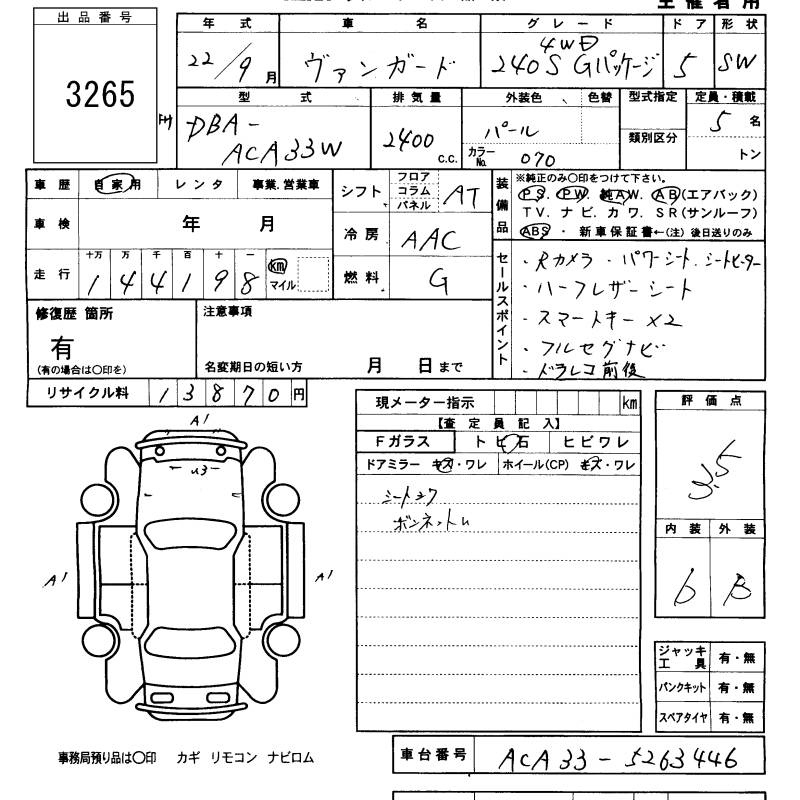 主催者用
出品番号
3265
年式 車名 グレード ドア 形状
22/9月 ヴァンガード 4WD 240S Gパッケージ 5 SW
型式 排気量 外装色 色替 型式指定 定員・積載
DBA-ACA33W 2400 c.c. パール 類別区分 5名
カラーNo. 070 トン
車歴 自家用 レンタ 事業.営業車
車検 年 月
走行 十万 万 千 百 十 一
1 4 4 1 9 8 km マイル
シフト フロア コラム パネル AT
冷房 AAC
燃料 G
装備品
※純正のみ○印をつけて下さい。
PS. PW. 純AW. AB(エアバック)
TV. ナビ. カワ. SR(サンルーフ)
ABS ・ 新車保証書←(注) 後日送りのみ
セールスポイント
・Rカメラ ・パワーシート.シートヒーター
・ハーフレザーシート
・スマートキー×2
・フルセグナビ
・ドラレコ前後
修復歴 箇所
有
(有の場合は○印を)
注意事項
名変期日の短い方 月 日まで
リサイクル料 1 3 8 7 0 円
現メーター指示 km
【査定員記入】
Fガラス トビ石 ヒビワレ
ドアミラー キズ・ワレ ホイール(CP) キズ・ワレ
シートコワ
ボンネットU
評価点
3.5
内装 外装
b B
A1
U3
A1
A1
ジャッキ工具 有・無
パンクキット 有・無
スペアタイヤ 有・無
事務局預り品は○印 カギ リモコン ナビロム
車台番号 ACA33-5263446